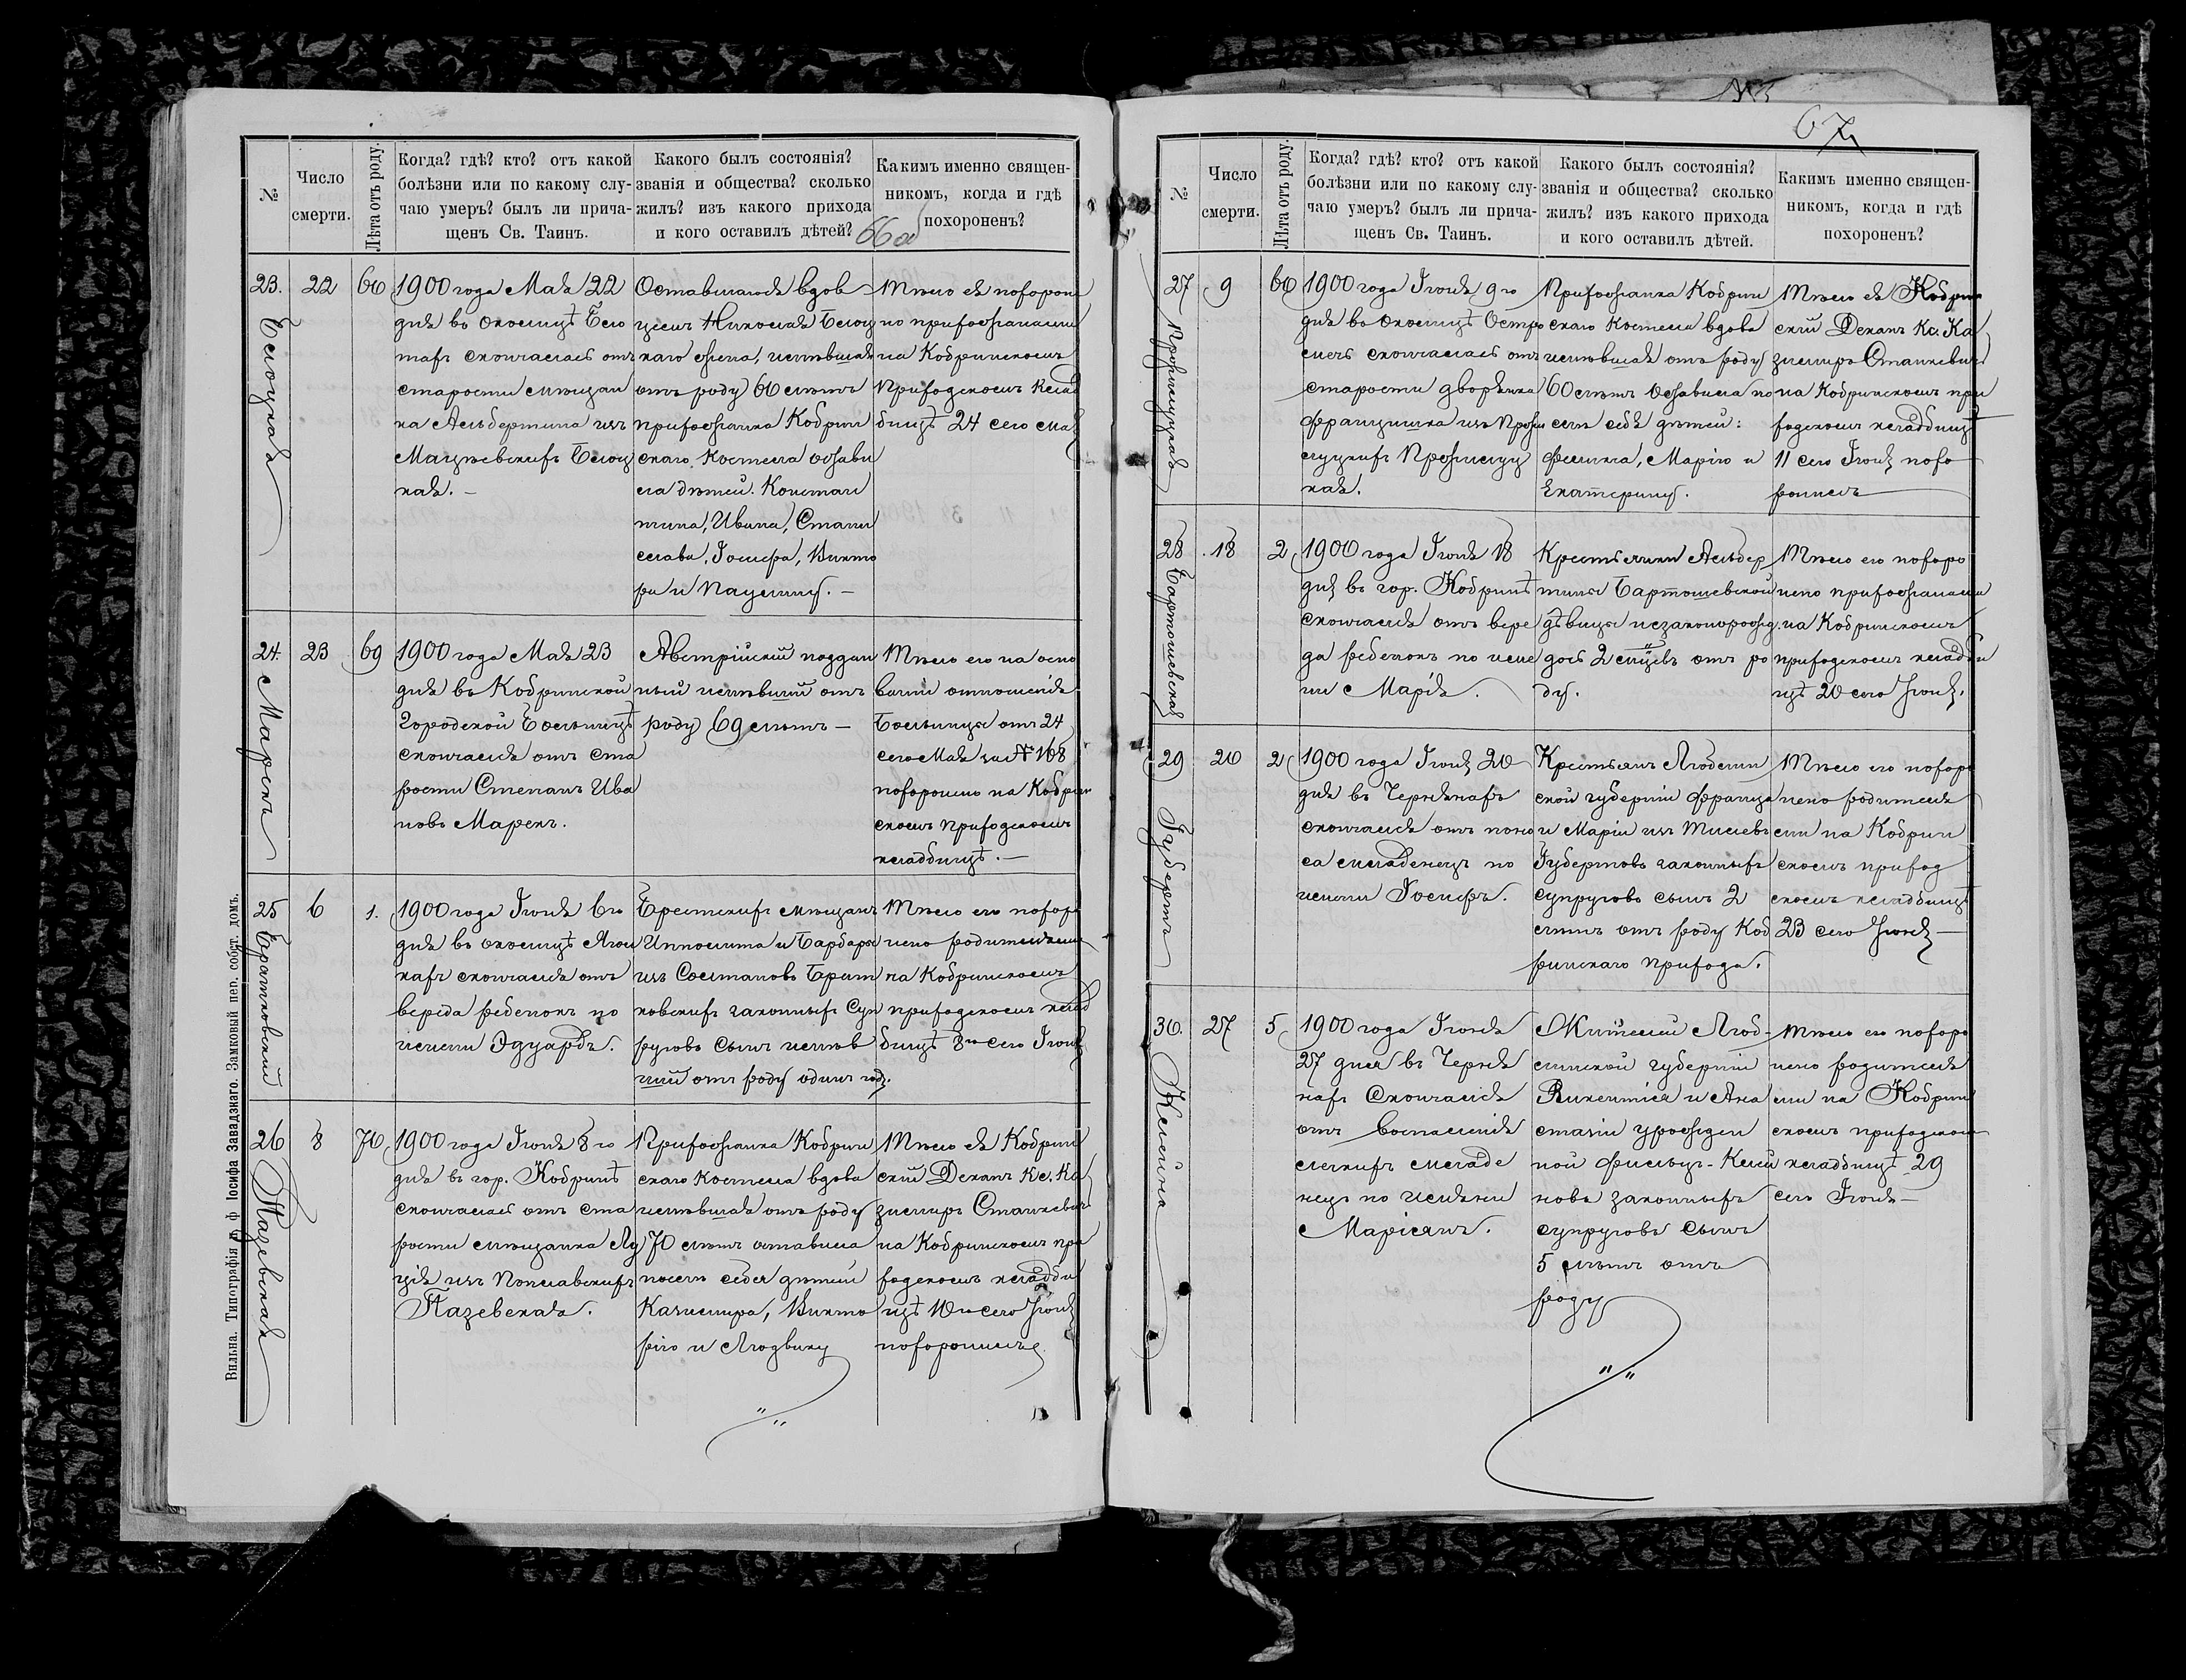 67
66 об
№
Число
смерти.
Лѣта отъ роду.
Когда? гдѣ? кто? отъ какой
болѣзни или по какому слу-
чаю умеръ? былъ ли прича-
щенъ Св. Таинъ.
Какого былъ состоянія?
званія и общества? сколько
жилъ? изъ какого прихода
и кого оставилъ дѣтей?
Какимъ именно священ-
никомъ, когда и гдѣ
похороненъ?
23.
Белоцкая
22
60
1900 года Мая 22
дня въ околицѣ Бело
тах скончалась отъ
старости мѣщан
ка Альбертина изъ
Мацѣевских Белоц
кая. –
Оставшаяся вдов
цемъ Николая Белоц
каго жена, имѣвшая
отъ роду 60 лѣтъ
прихожанка Кобрин
скаго костела остави
ла дѣтей. Констан
тина, Ивана, Стани
слава, Іосифа, Викто
ра и Паулину. –
Тѣло ея похорон
но прихожанами
на Кобринскомъ
Приходскомъ клад
бищѣ 24 сего Мая
24.
Марекъ
23
69
1900 года Мая 23
дня въ Кобринской
Городской Больницѣ
скончался отъ ста
рости Степанъ Ива
новъ Марекъ.
Австрійскій поддан
ный имѣвшій отъ
роду 69 лѣтъ –
Тѣло его на осно
ваніи отношенія
Больницы отъ 24
сего Мая за № 168
похоронено на Кобрин
скомъ приходскомъ
кладбищѣ. –
25
Братковский
6
1.
1900 года Іюня 6го
дня въ околицѣ Лющи
ках скончался отъ
вереда ребенокъ по
имени Эдуардъ.
Брестских мѣщанъ
Ипполита и Барбары
изъ Солтановъ Брат
ковских законных Суп
руговъ Сынъ имѣв
шій отъ роду одинъ годъ.
Тѣло его похоро
нено родителями
на Кобринскомъ
приходскомъ клад
бищѣ 8го сего Іюня
26
Пазевская
8
70
1900 года Іюня 8го
дня въ гор. Кобринѣ
скончалась отъ ста
рости мѣщанка Лу
ція изъ Пославских
Пазевская.
Прихожанка Кобрин
скаго костела вдова
имѣвшая отъ роду
70 лѣтъ оставила
послѣ себя дѣтей
Казимира, Викто
рію и Людвику
Тѣло ея Кобрин
скій Деканъ Кс. Ка
зимиръ Станкевичъ
на Кобринскомъ при
ходскомъ кладби
щѣ 10го сего Іюня
похоронилъ
Вильна. Типографія п. ф. Іосифа Завадзкаго. Замковый пер. собст. домъ.
№
Число
смерти.
Лѣта отъ роду.
Когда? гдѣ? кто? отъ какой
болѣзни или по какому слу-
чаю умеръ? былъ ли прича-
щенъ Св. Таинъ.
Какого былъ состоянія?
званія и общества? сколько
жилъ? изъ какого прихода
и кого оставилъ дѣтей.
Какимъ именно священ-
никомъ, когда и гдѣ
похороненъ?
27
9
60
1900 года Іюня 9го
дня въ околицѣ Остро
скончалась отъ
старости дворянка
Францишка изъ
кая.
Прихожанка Кобрин
скаго Костела вдова
имѣвшая отъ роду
60 лѣтъ оставила по
слѣ себя дѣтей:
Феликса, Марію и
Екатерину.
Тѣло ея Кобрин
скій Деканъ Кс. Ка
зимиръ Станкевичъ
на Кобринскомъ при
ходскомъ кладбищѣ
11 сего Іюня похо
ронилъ
28
Бартошевская
18
2
1900 года Іюня 18
дня въ гор. Кобринѣ
скончался отъ вере
да ребенокъ по име
ни Марія.
Крестьянки Альбер
тины Бартошевской
дѣвицы незаконорожд.
дочь 2 мѣсяцевъ отъ ро
ду.
Тѣло его похоро
нено прихожанами
на Кобринскомъ
приходскомъ кладби
щѣ 20 сего Іюня.
29
Губертъ
20
2
1900 года Іюня 20
дня въ Чернянах
скончался отъ поно
са младенецъ по
имени Іосифъ.
Крестьянъ Люблин
ской губерніи Франца
и Маріи изъ
Губертовъ законных
супруговъ сынъ 2
лѣтъ отъ роду Коб
ринскаго прихода.
Тѣло его похоро
нено родителя
ми на Кобрин
скомъ приход
скомъ кладбищѣ
23 сего Іюня –
30.
Клейна
27
5
1900 года Іюня
27 дня въ Черня
нах Скончался
отъ воспаленія
легких младе
нецъ по имяни
Маріянъ.
Жителей Люб-
линской губерніи
Викентія и Ана
стазіи урожден
ной Фильцъ-Клей
новъ законных
супруговъ сынъ
5 лѣтъ отъ
роду
Тѣло его похоро
нено родителя
ми на Кобрин
скомъ приходском
кладбищѣ 29
сего Іюня –